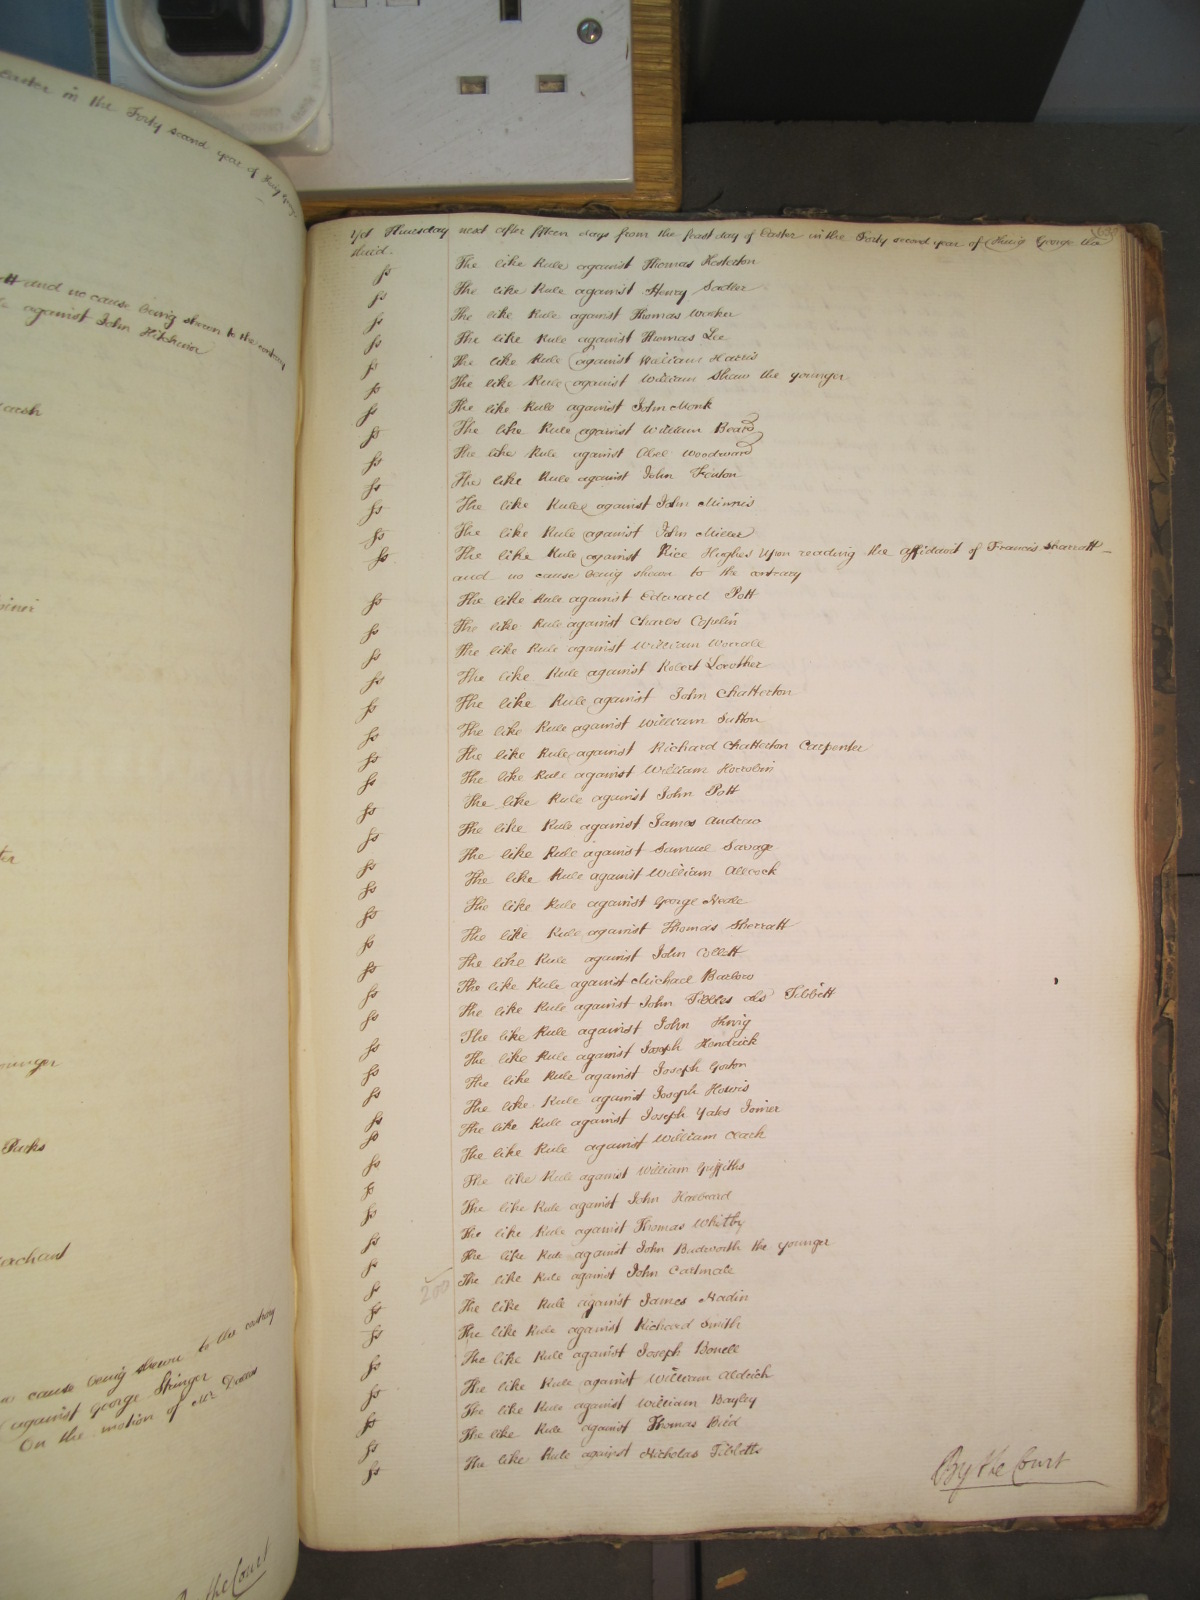 Easter in the Forty second year of King George
and no cause being shewn to the contrary
against John Hitchener
ounger
Parks
erchant
no cause being shewn to the contrary
against George Stringer
On the motion of Mr. Dallas
By the Court
Yet Thursday next after fifteen days from the feast day of Easter in the Forty second year of King George the
third.
The like Rule against Thomas Hesketon
The like Rule against Henry Sadler
The like Rule against Thomas Worker
The like Rule against Thomas Lee
The like Rule against William Harris
The like Rule against William Shaw the younger
The like Rule against John Monk
The like Rule against William Beard
The like Rule against Abel Woodward
The like Rule against John Fenton
The like Rule against John Minnis
The like Rule against John Miller
The like Rule against Rice Hughes Upon reading the affidavit of Francis Sharratt
and no cause being shewn to the contrary
The like Rule against Edward Pott
The like Rule against Charles Copelin
The like Rule against William Worrall
The like Rule against Robert Lowther
The like Rule against John Chatterton
The like Rule against William Sutton
The like Rule against Richard Chatterton Carpenter
The like Rule against William Horrobin
The like Rule against John Pott
The like Rule against James Andrew
The like Rule against Samuel Savage
The like Rule against William Allcock
The like Rule against George Neale
The like Rule against Thomas Sherratt
The like Rule against John Collett
The like Rule against Michael Barlow
The like Rule against John Tibbles als Tibbett
The like Rule against John
The like Rule against Joseph Hendrick
The like Rule against Joseph Gorton
The like Rule against Joseph Howis
The like Rule against Joseph Yates Joiner
The like Rule against William Clark
The like Rule against William Griffiths
The like Rule against John
The like Rule against Thomas Whitby
The like Rule against John Budworth the younger
200 The like Rule against John Cartmale
The like Rule against James Nadin
The like Rule against Richard Smith
The like Rule against Joseph Bonell
The like Rule against William Aldrich
The like Rule against William Bayley
The like Rule against Thomas Bird
The like Rule against Nicholas Tibbetts
By the Court